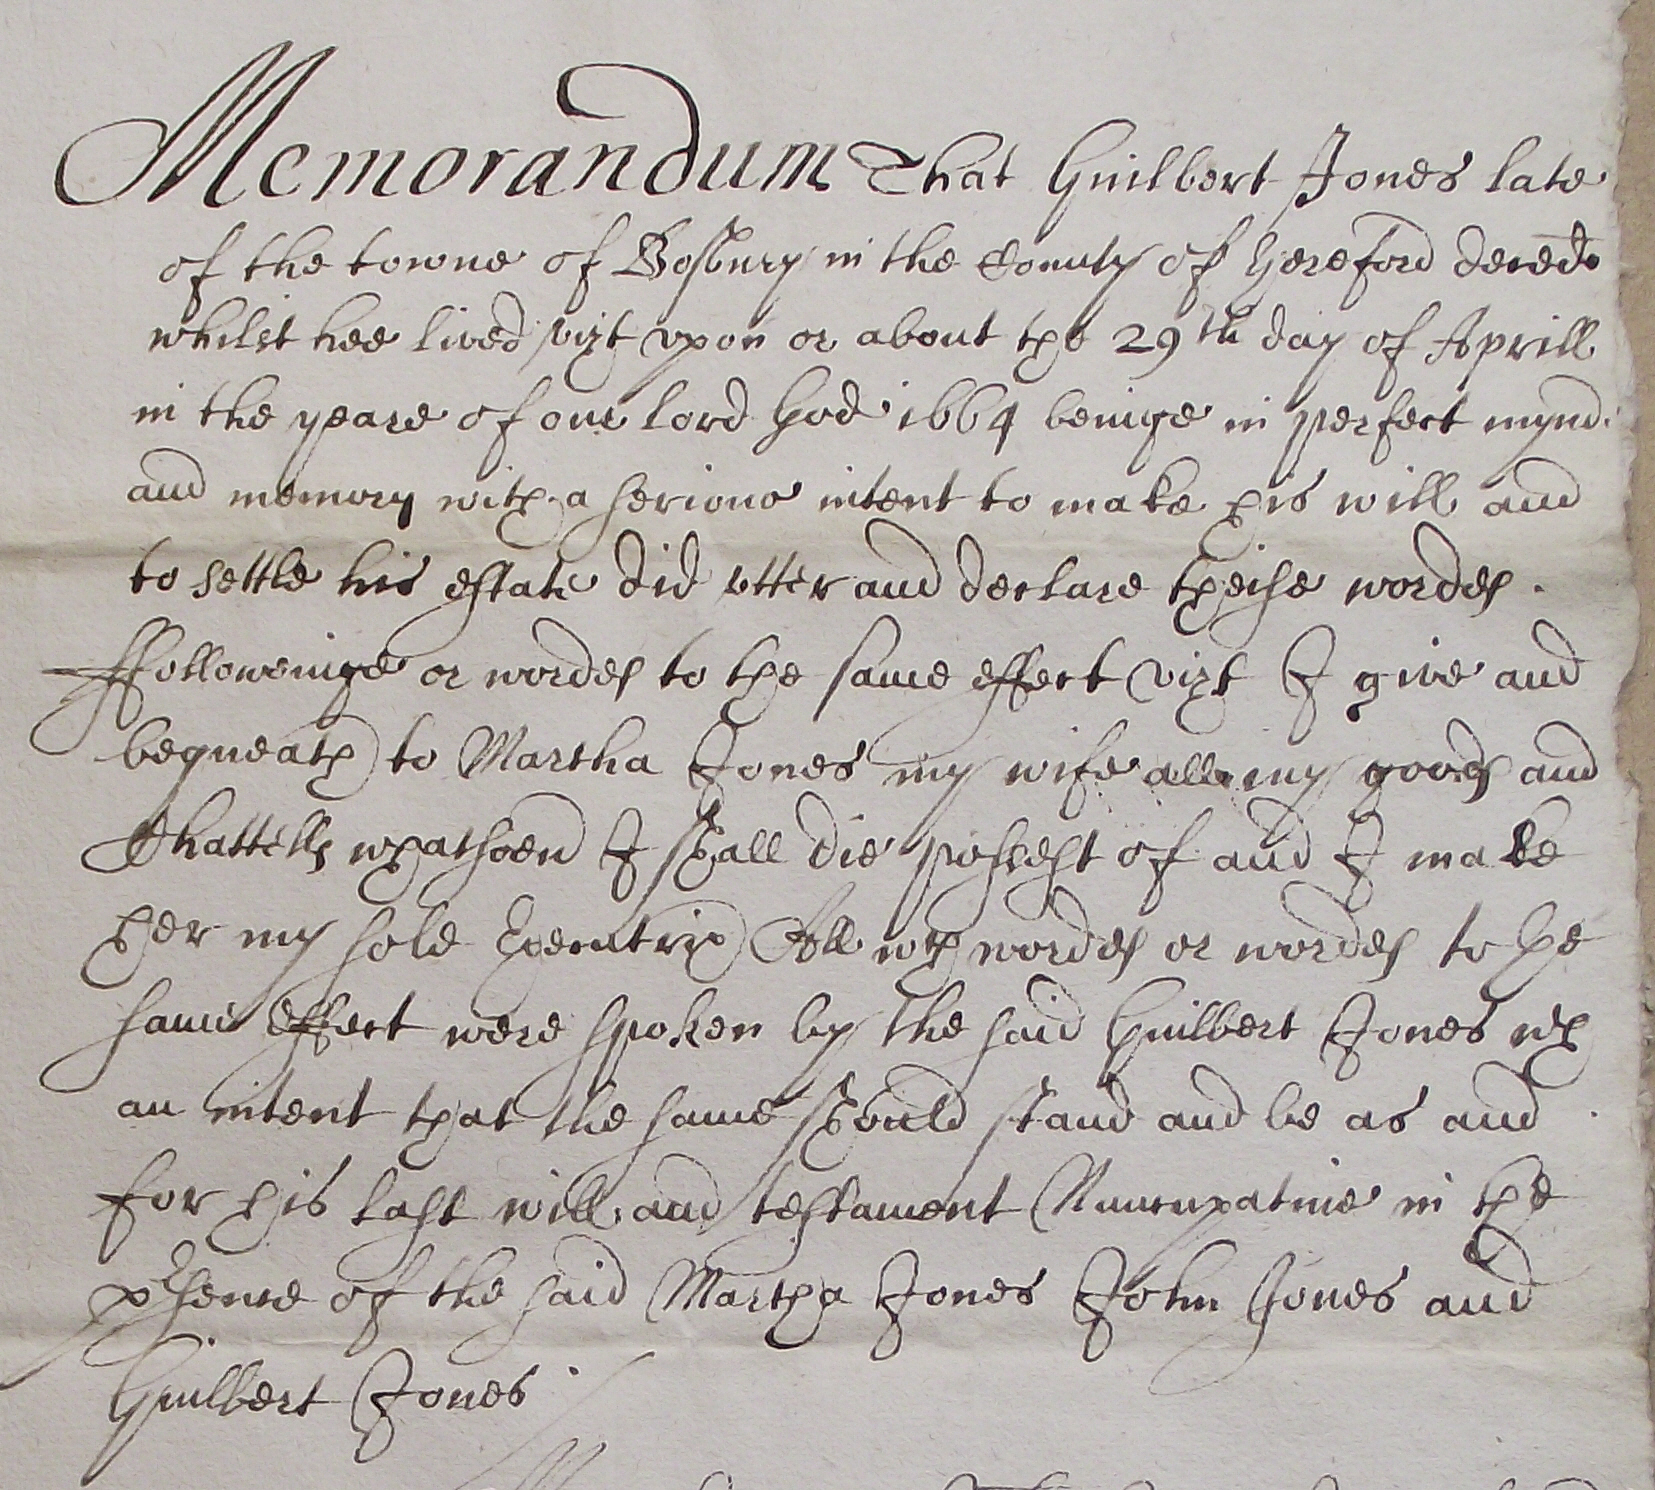 Memorandum That Guilbert Jones late
of the towne of Bosbury in the County of Hereford deced
whilst hee lived vizt vpon or about the 29th day of Aprill
in the yeare of our lord God 1664 beinge in perfect mynd
and memory with a serious intent to make his will and
to settle his estate did vtter and declare theise wordes
ffolloweinge or wordes to the same effect vizt I give and
bequeath to Martha Jones my wife all my goods and
Chattells whatsoeu I shall die possest of and I make
her my sole Executrix All wch wordes or wordes to the
same effect were spoken by the said Guilbert Jones wth
an intent that the same should stand and be as and
for his last will and testament Nuncupative in the
prsence of the said Martha Jones John Jones and
Guilbert Jones